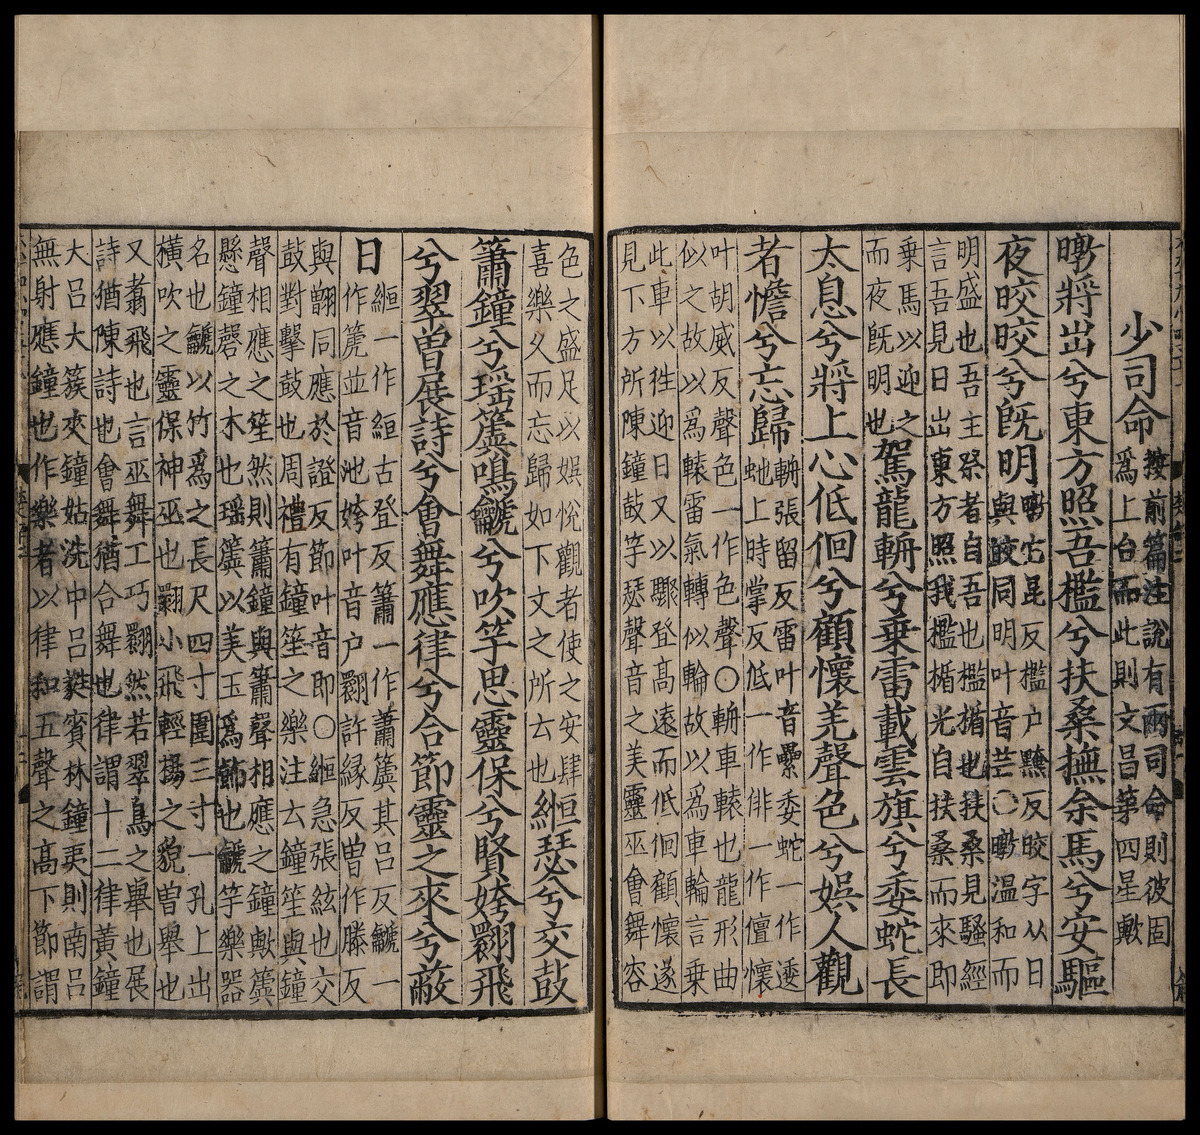 少司命按前篇注說有兩司命則彼固
爲上台而此則文昌第四星歟
暾將出兮東方照吾檻兮扶桑撫余馬兮安驅
夜晈晈兮旣明暾它昆反檻户黤反晈字从日
與皎同明叶音芒○暾温和而
明盛也吾主祭者自吾也檻楯也扶桑見騷經
言吾見日出東方照我檻楯光自扶桑而來即
乗馬以迎之
而夜旣明也駕龍輈兮乗雷載雲旗兮委蛇長
太息兮將上心低佪兮顧懷羌聲色兮娛人觀
者憺兮忘歸輈張留反雷叶音纍委蛇一作逶
虵上時掌反低一作俳一作儃懷
叶胡威反聲色一作色聲○輈車轅也龍形曲
似之故以爲轅雷氣轉似輪故以爲車輪言乗
此車以徃迎日又以驟登髙遠而低佪顧懷遂
見下方所陳鐘鼓竽瑟聲音之美靈巫會舞容
色之盛足以娯恱觀者使之安肆
喜樂久而忘歸如下文之所云也緪瑟兮交鼓
簫鐘兮瑶簴鳴鷈兮吹竽思靈保兮賢姱翾飛
兮翠曾展詩兮會舞應律兮合節靈之來兮蔽
日緪一作絙古登反簫一作蕭簴其吕反鷈一
作箎並音池姱叶音户翾許緣反曽作滕反
與翻同應於證反節叶音即○緪急張絃也交
鼓對擊鼓也周禮有鐘笙之樂注云鐘笙與鐘
聲相應之笙然則簫鐘與簫聲相應之鐘歟簴
懸鐘磬之木也瑶簴以美玉爲飾也鷈竽樂器
名也鷈以竹爲之長尺四寸圍三寸一孔上出
横吹之靈保神巫也翾小飛輕揚之貌曽舉也
又翥飛也言巫舞工巧翾然若翠鳥之舉也展
詩猶陳詩也會舞猶合舞也律謂十二律黃鐘
大吕大簇夾鐘姑洗中吕蕤賓林鐘夷則南吕
無射應鐘也作樂者以律和五聲之高下節謂